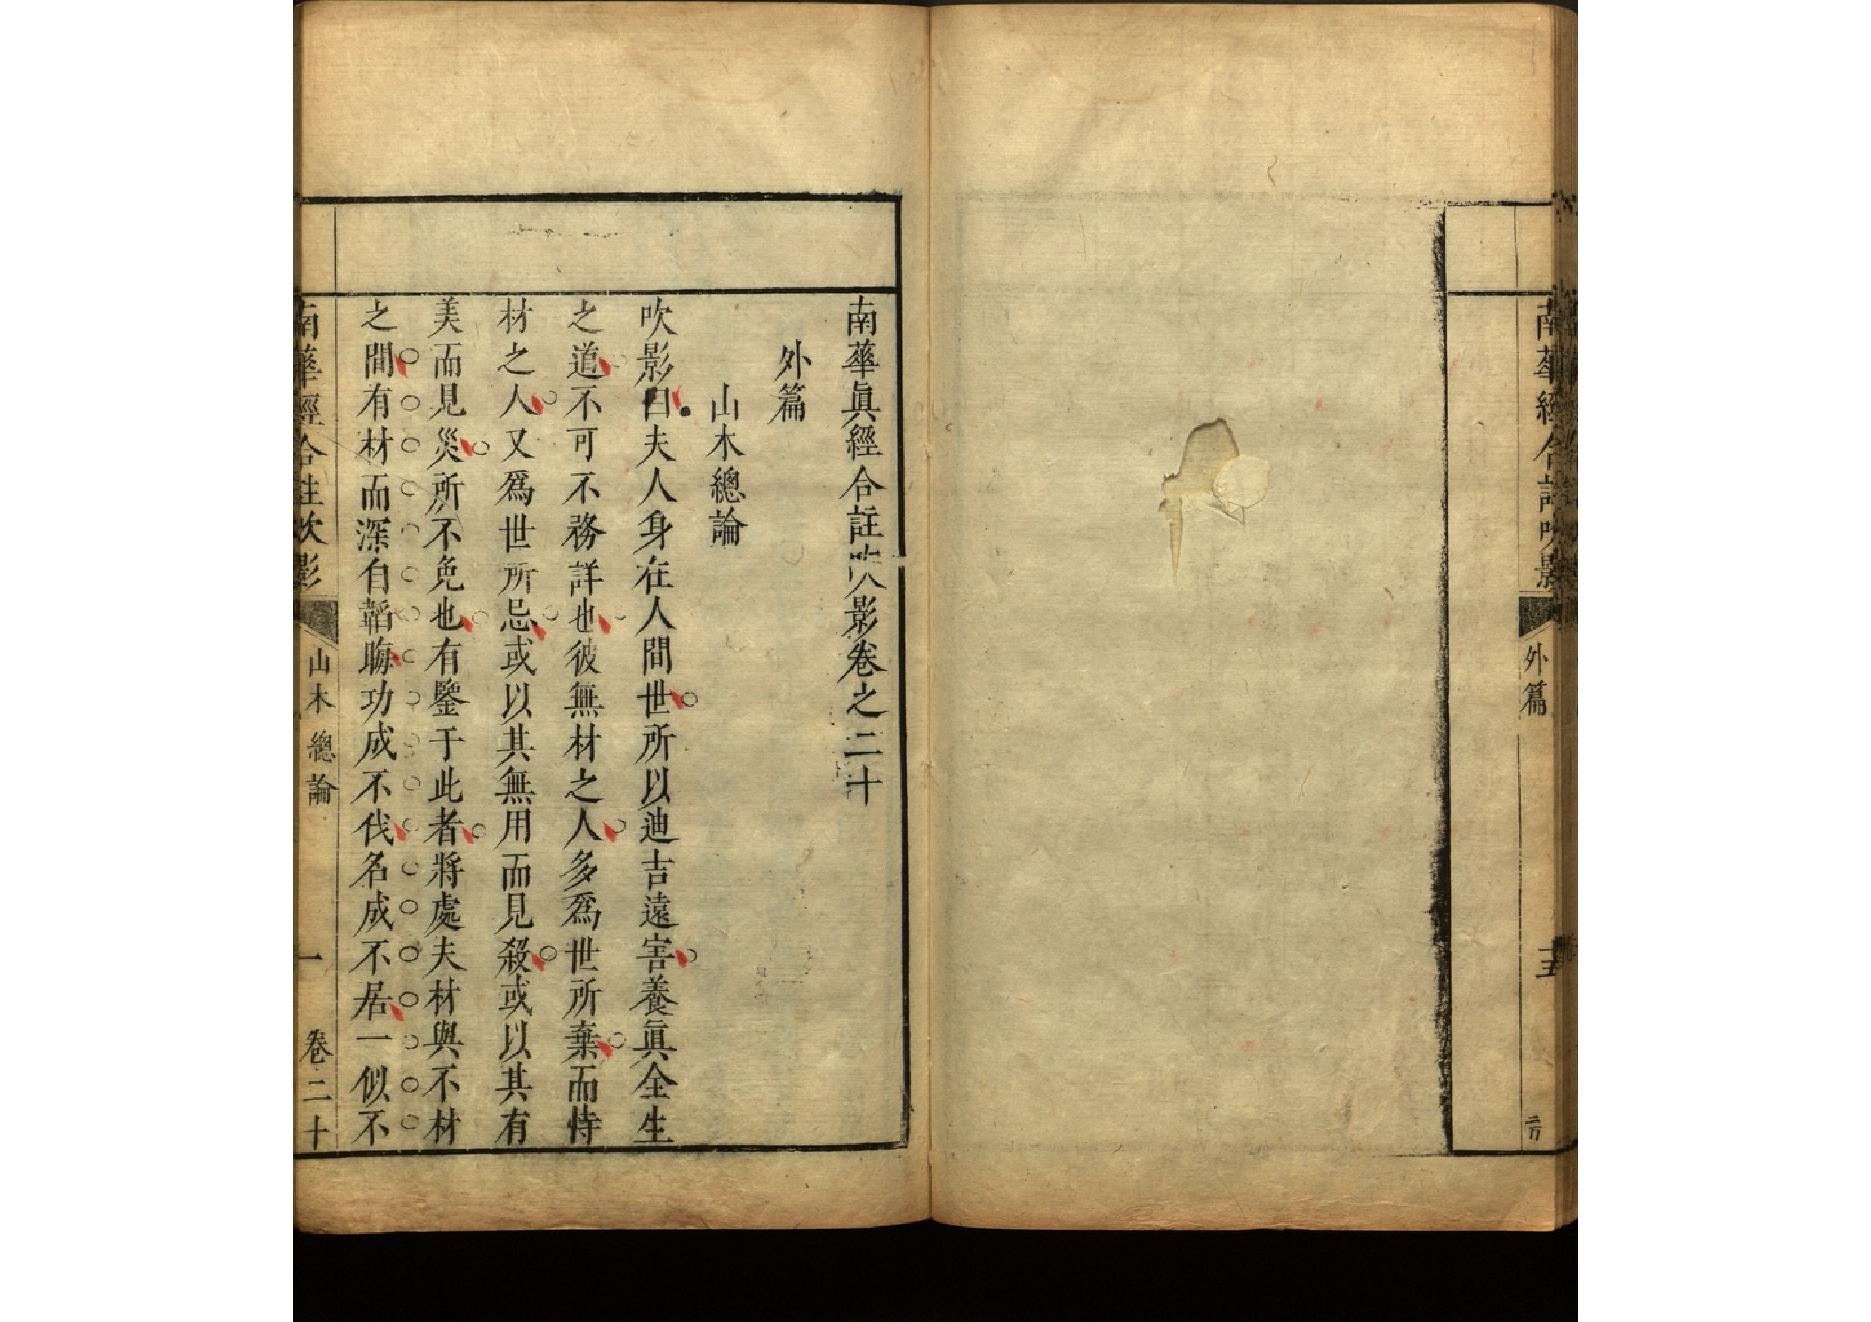 南華經合註吹影
外篇
南華眞經合註吹影卷之二十
外篇
山木總論
吹影曰夫人身在人間世所以迪吉遠害養眞全生
之道不可不務詳也彼無材之人多爲世所棄而恃
材之人又爲世所忌或以其無用而見殺或以其有
美而見災所不免也有鑒于此者將處夫材與不材
之間有材而深自韜晦功成不伐名成不居一似不
南華經合註吹影
山木總論
一
卷二十